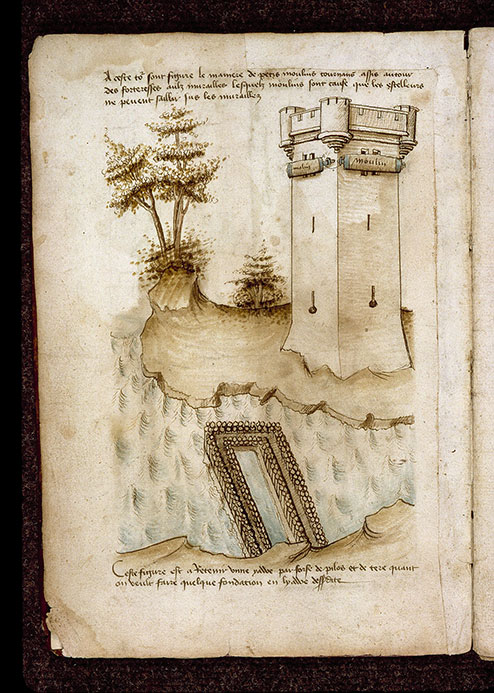 A ceste co sont figure le maniere de petis moulins tournans assis autour
des forteresses aulx murailles lesquelz moulins sont cause que les eschelleurs
ne peuent saillir sus les murailles
moulin
moulin
Ceste figure est a Retenir une yauve par forse de pilos et de tere quant
on veult faire quelque fondation en lyauve